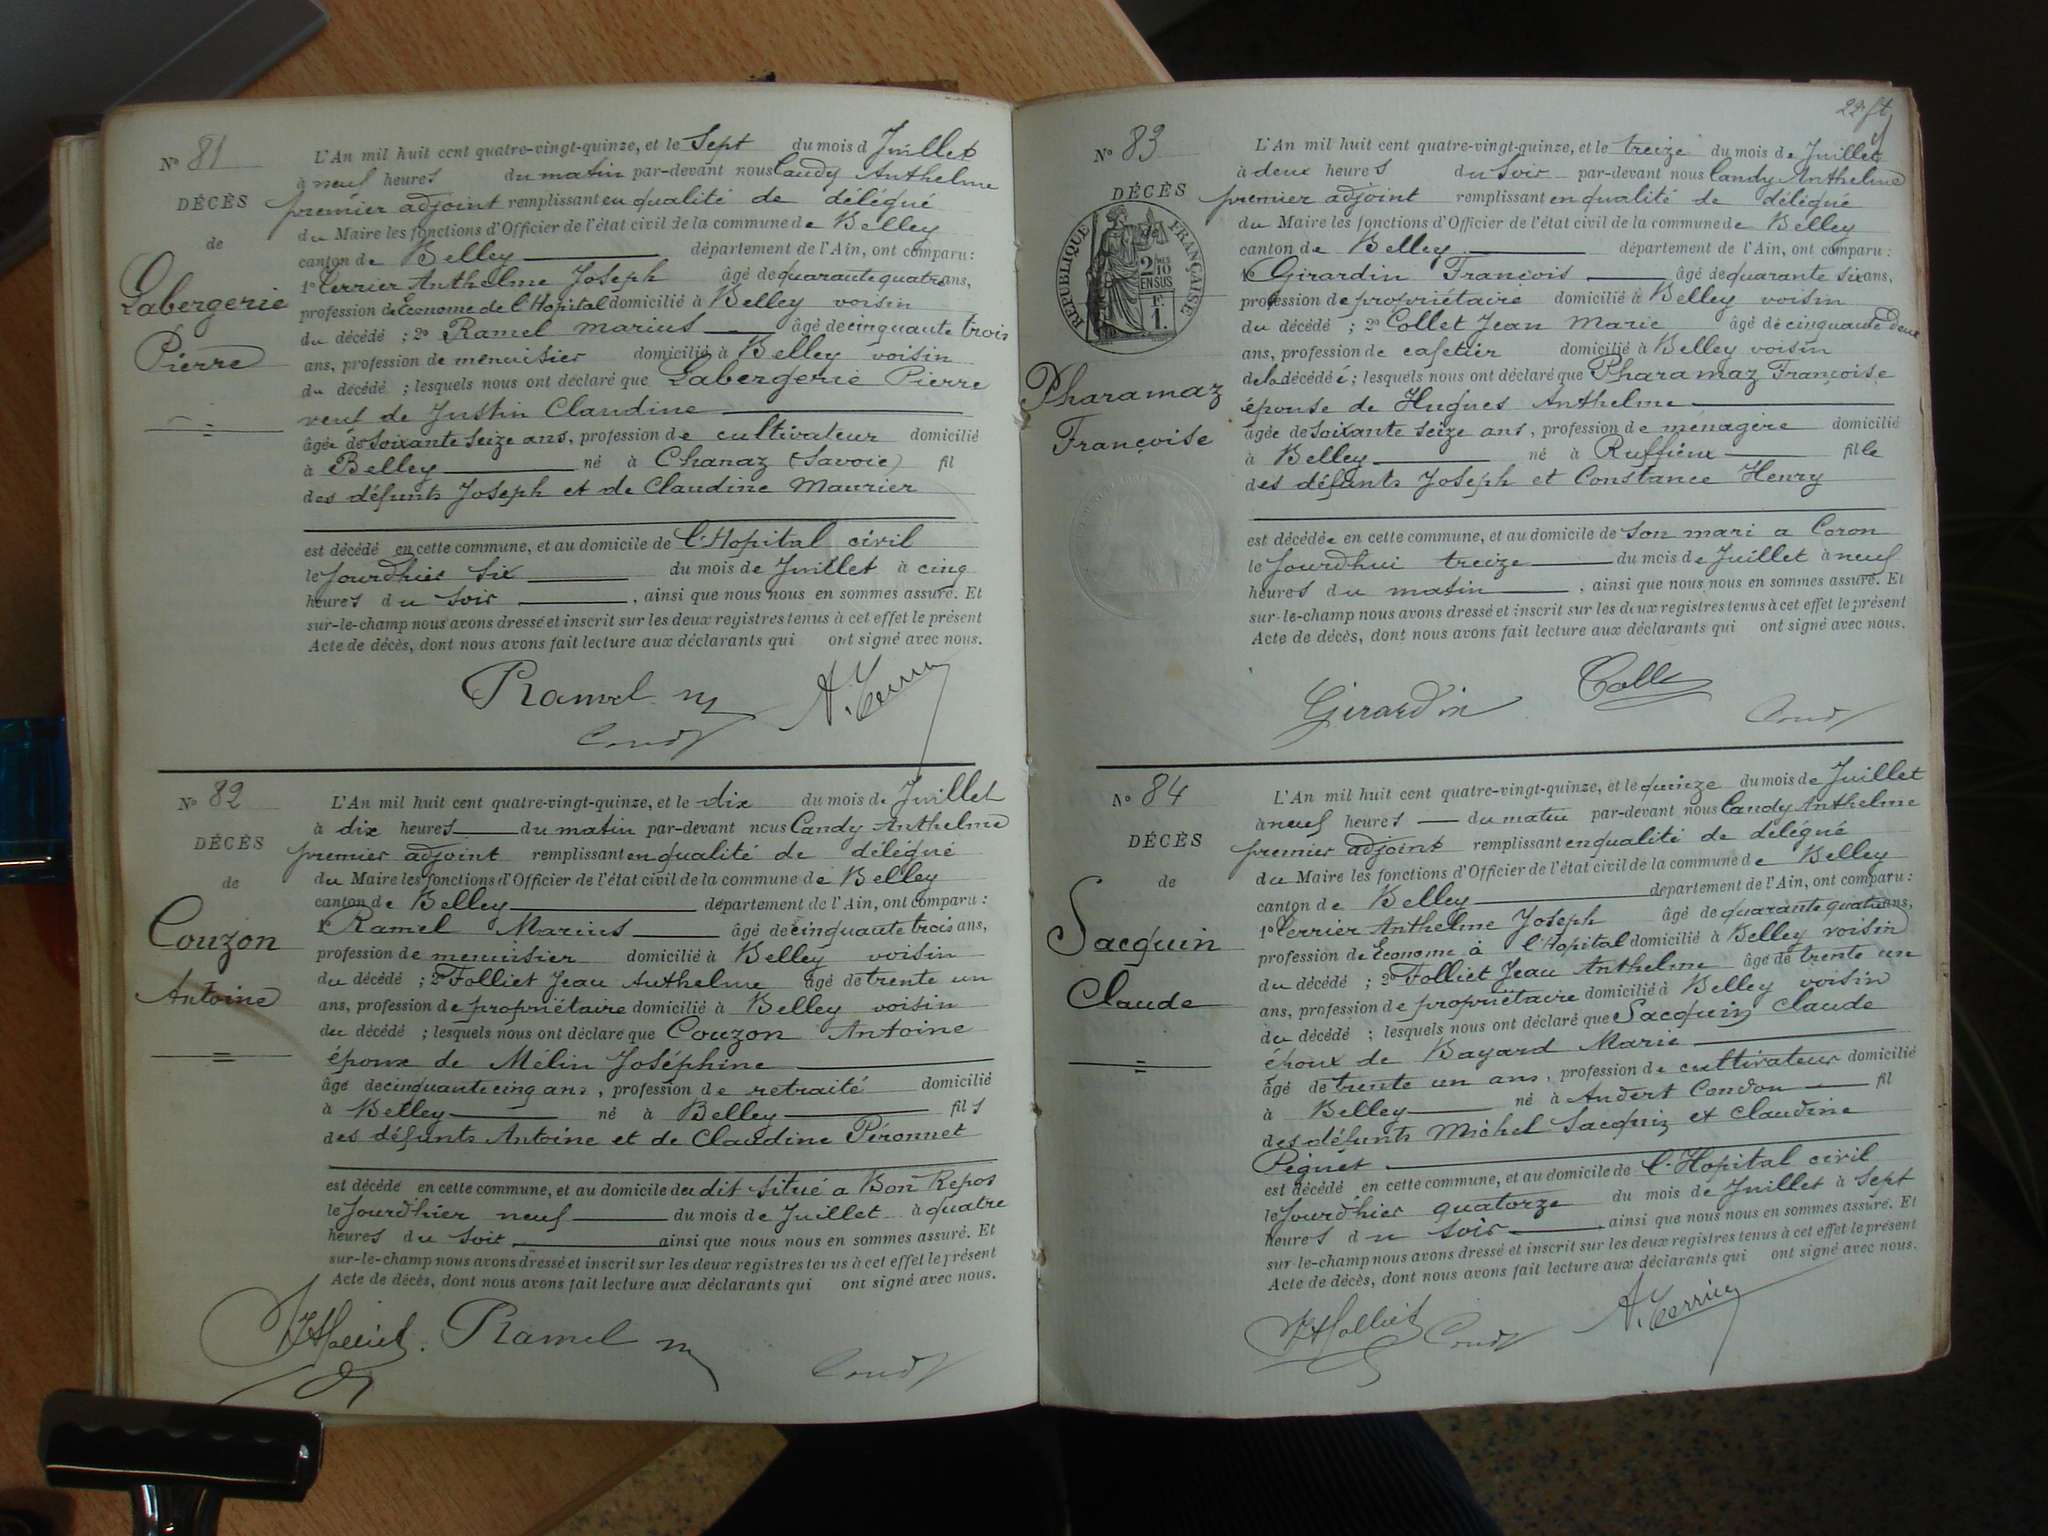 N° 81
DÉCÈS
de
Labergerie
Pierre
L'An mil huit cent quatre-vingt-quinze, et le Sept du mois d Juillet
à neuf heures du matin par-devant nous Candy Anthelme
premier adjoint remplissant en qualité de délégué
du Maire les fonctions d'Officier de l'état civil de la commune de Belley
canton de Belley département de l'Ain, ont comparu :
1° Terrier Anthelme Joseph âgé de quarante quatre ans,
profession de Econome de l'Hopital domicilié à Belley voisin
du décédé ; 2° Ramel Marius âgé de cinquante trois
ans, profession de menuisier domicilié à Belley voisin
du décédé ; lesquels nous ont déclaré que Labergerie Pierre
veuf de Justin Claudine
âgée de soixante seize ans, profession de cultivateur domicilié
à Belley né à Chanaz (Savoie) fil
des défunts Joseph et de Claudine Maurier
est décédé en cette commune, et au domicile de l'Hopital civil
le jourd'hier six du mois de Juillet à cinq
heures du soir , ainsi que nous nous en sommes assuré. Et
sur-le-champ nous avons dressé et inscrit sur les deux registres tenus à cet effet le présent
Acte de décès, dont nous avons fait lecture aux déclarants qui ont signé avec nous.
Ramel m A. Terrier
Candy
N° 82
DÉCÈS
de
Couzon
Antoine
L'An mil huit cent quatre-vingt-quinze, et le dix du mois de Juillet
à dix heures du matin par-devant nous Candy Anthelme
premier adjoint remplissant en qualité de délégué
du Maire les fonctions d'Officier de l'état civil de la commune de Belley
canton de Belley département de l'Ain, ont comparu :
1° Ramel Marius âgé de cinquante trois ans,
profession de menuisier domicilié à Belley voisin
du décédé ; 2° Folliet Jean Anthelme âgé de trente un
ans, profession de propriétaire domicilié à Belley voisin
du décédé ; lesquels nous ont déclaré que Couzon Antoine
époux de Mélin Joséphine
âgé de cinquante cinq ans, profession de retraité domicilié
à Belley né à Belley fils
des défunts Antoine et de Claudine Péronnet
est décédé en cette commune, et au domicile du dit situé a Bon Repos
le jourd'hier neuf du mois de Juillet à quatre
heures du soir ainsi que nous nous en sommes assuré. Et
sur-le-champ nous avons dressé et inscrit sur les deux registres tenus à cet effet le présent
Acte de décès, dont nous avons fait lecture aux déclarants qui ont signé avec nous.
Folliet Ramel m Candy
N° 83
DÉCÈS
de
RÉPUBLIQUE FRANÇAISE
2/10
EN SUS
F.
1.
Pharamaz
Françoise
L'An mil huit cent quatre-vingt-quinze, et le treize du mois de Juillet
à deux heures du soir par-devant nous Candy Anthelme
premier adjoint remplissant en qualité de délégué
du Maire les fonctions d'Officier de l'état civil de la commune de Belley
canton de Belley département de l'Ain, ont comparu :
1° Girardin François âgé de quarante six ans,
profession de propriétaire domicilié à Belley voisin
du décédé ; 2° Collet Jean Marie âgé de cinquante deux
ans, profession de cafetier domicilié à Belley voisin
de la décédé é ; lesquels nous ont déclaré que Pharamaz Françoise
épouse de Hugues Anthelme
âgée de soixante seize ans, profession de ménagère domicilié
à Belley né à Ruffieux fille
des défunts Joseph et Constance Henry
est décédée en cette commune, et au domicile de son mari a Coron
le jourd'hui treize du mois de Juillet à neuf
heures du matin , ainsi que nous nous en sommes assuré. Et
sur-le-champ nous avons dressé et inscrit sur les deux registres tenus à cet effet le présent
Acte de décès, dont nous avons fait lecture aux déclarants qui ont signé avec nous.
Girardin Collet Candy
N° 84
DÉCÈS
de
Sacquin
Claude
L'An mil huit cent quatre-vingt-quinze, et le quinze du mois de Juillet
à neuf heures du matin par-devant nous Candy Anthelme
premier adjoint remplissant en qualité de délégué
du Maire les fonctions d'Officier de l'état civil de la commune de Belley
canton de Belley département de l'Ain, ont comparu :
1° Terrier Anthelme Joseph âgé de quarante quatre ans,
profession de Econome à l'Hopital domicilié à Belley voisin
du décédé ; 2° Folliet Jean Anthelme âgé de trente un
ans, profession de propriétaire domicilié à Belley voisin
du décédé ; lesquels nous ont déclaré que Sacquin Claude
époux de Bayard Marie
âgé de trente un ans, profession de cultivateur domicilié
à Belley né à Andert Condon fil
des défunts Michel Sacquin et Claudine
Péguet
est décédé en cette commune, et au domicile de l'Hopital civil
le jourd'hier quatorze du mois de Juillet à sept
heures du soir , ainsi que nous nous en sommes assuré. Et
sur-le-champ nous avons dressé et inscrit sur les deux registres tenus à cet effet le présent
Acte de décès, dont nous avons fait lecture aux déclarants qui ont signé avec nous.
Folliet Candy A. Terrier